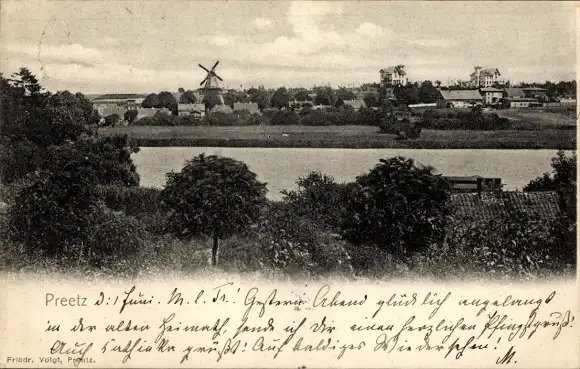 Preetz d: 1 Juni. M. l. Tr.! Gestern Abend glücklich angelangt
in der alten Heimath, sende ich Dir einen herzlichen Pfingstgruß!
Auch Cathinka grüßt! Auf baldiges Wiedersehen!
M.
Friedr. Voigt, Preetz.